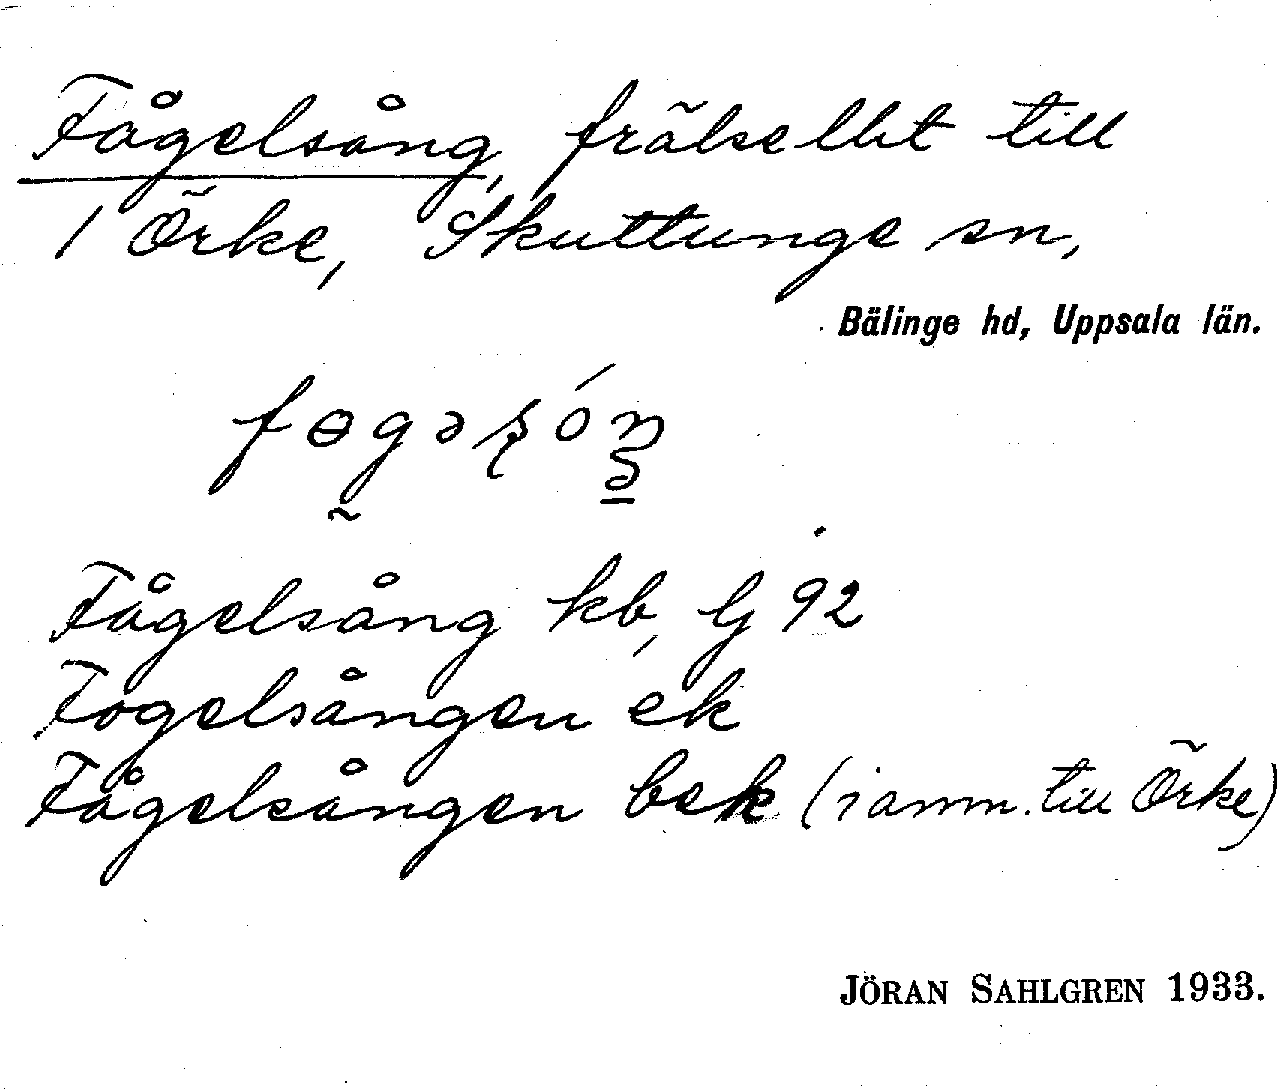 Fågelsång, frälselht till
1 Örke, Skuttunge sn,
Bälinge hd, Uppsala län.
Fågelsång kb, G 92
Fogelsången ek
Fågelsången bek (i anm. till Örke)
JÖRAN SAHLGREN 1933.